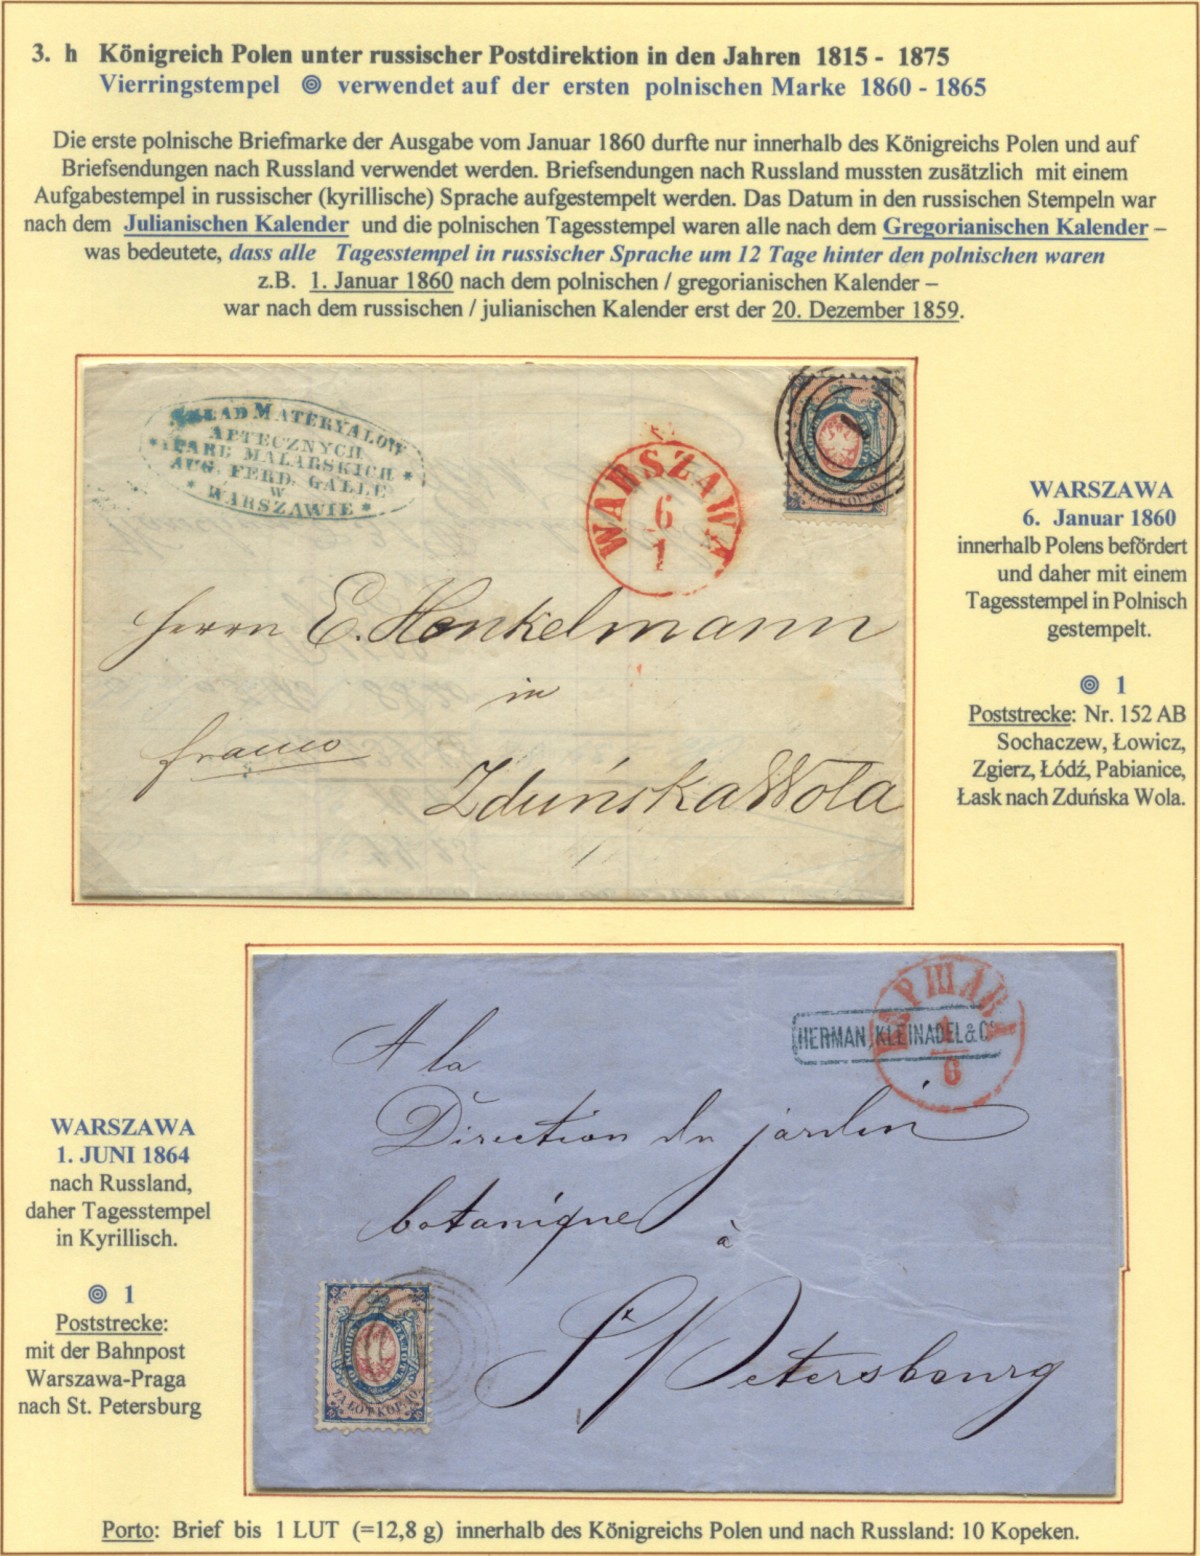 3. h Königreich Polen unter russischer Postdirektion in den Jahren 1815 - 1875
Vierringstempel verwendet auf der ersten polnischen Marke 1860 - 1865
Die erste polnische Briefmarke der Ausgabe vom Januar 1860 durfte nur innerhalb des Königreichs Polen und auf
Briefsendungen nach Russland verwendet werden. Briefsendungen nach Russland mussten zusätzlich mit einem
Aufgabestempel in russischer (kyrillische) Sprache aufgestempelt werden. Das Datum in den russischen Stempeln war
nach dem Julianischen Kalender und die polnischen Tagesstempel waren alle nach dem Gregorianischen Kalender –
was bedeutete, dass alle Tagesstempel in russischer Sprache um 12 Tage hinter den polnischen waren
z.B. 1. Januar 1860 nach dem polnischen / gregorianischen Kalender –
war nach dem russischen / julianischen Kalender erst der 20. Dezember 1859.
SKŁAD MATERYAŁOW
APTECZNYCH
* I FARB MALARSKICH *
AUG. FERD. GALLE
W
* WARSZAWIE *
WARSZAWA
6
1
ZA ŁÓT KOP. 10.
Herrn E. Henkelmann
in
franco
Zduńska Wola
WARSZAWA
6. Januar 1860
innerhalb Polens befördert
und daher mit einem
Tagesstempel in Polnisch
gestempelt.
1
Poststrecke: Nr. 152 AB
Sochaczew, Łowicz,
Zgierz, Łódź, Pabianice,
Łask nach Zduńska Wola.
ВАРШАВА
1
6
HERMAN KLEINADEL & Co
A la
Direction du jardin
botanique
à
St Petersbourg
ZA ŁÓT KOP. 10.
WARSZAWA
1. JUNI 1864
nach Russland,
daher Tagesstempel
in Kyrillisch.
1
Poststrecke:
mit der Bahnpost
Warszawa-Praga
nach St. Petersburg
Porto: Brief bis 1 LUT (=12,8 g) innerhalb des Königreichs Polen und nach Russland: 10 Kopeken.